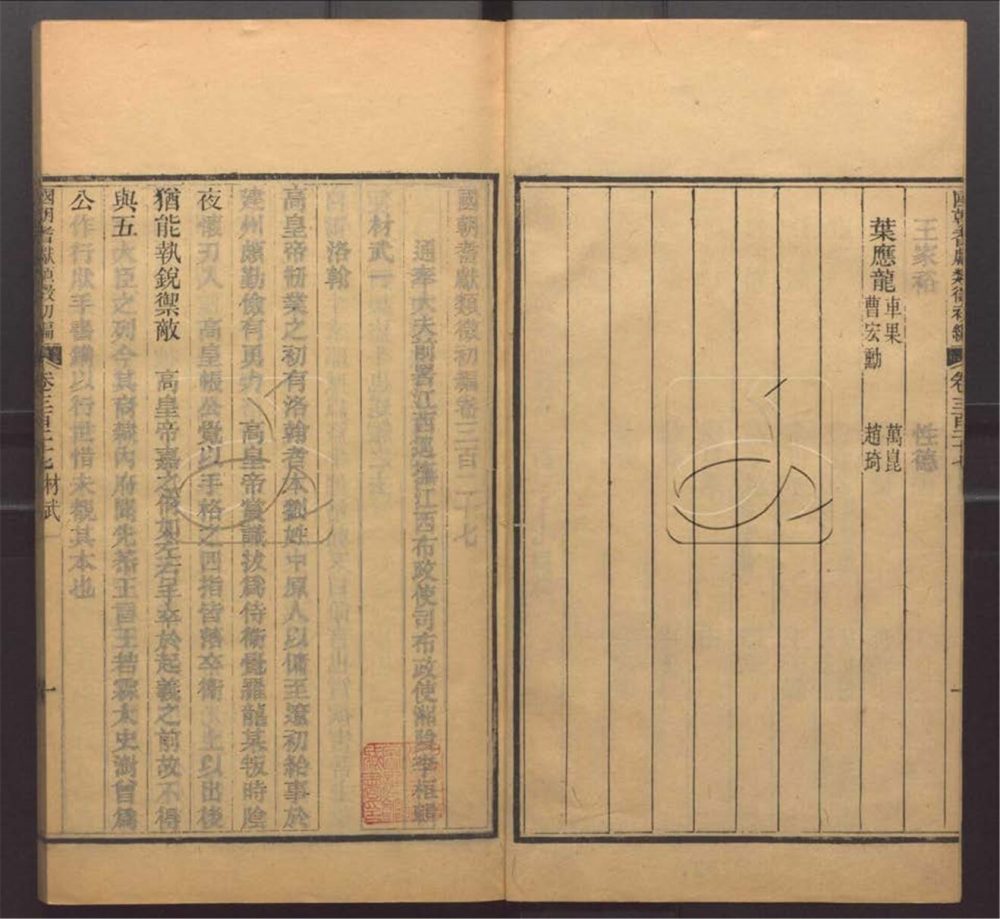 國朝耆獻類徵初編 卷三百二十七
王家裕 性德
葉應龍 車果 曹宏勳 萬崑 趙琦
國朝耆獻類徵初編卷三百二十七
通奉大夫前署江西巡撫江西布政使司布政使湘陰李桓輯
材武一
洛翰
高皇帝創業之初有洛翰者本劉姓中原人以傭至遼初給事於
建州頗勤儉有勇力 高皇帝嘗識拔爲侍衛覺羅龍某叛時陰
夜懷刃入 高皇帳公覺以手格之四指皆落卒衛 上以出後
猶能執銳禦敵 高皇帝嘉之 卒於起義之前故不得
與五大臣之列今其裔隸內府 先恭王言王若霖太史澍曾爲
公作行狀手書鐫以行世惜未覩其本也
國朝耆獻類徵初編 卷三百二十七 材武一 一